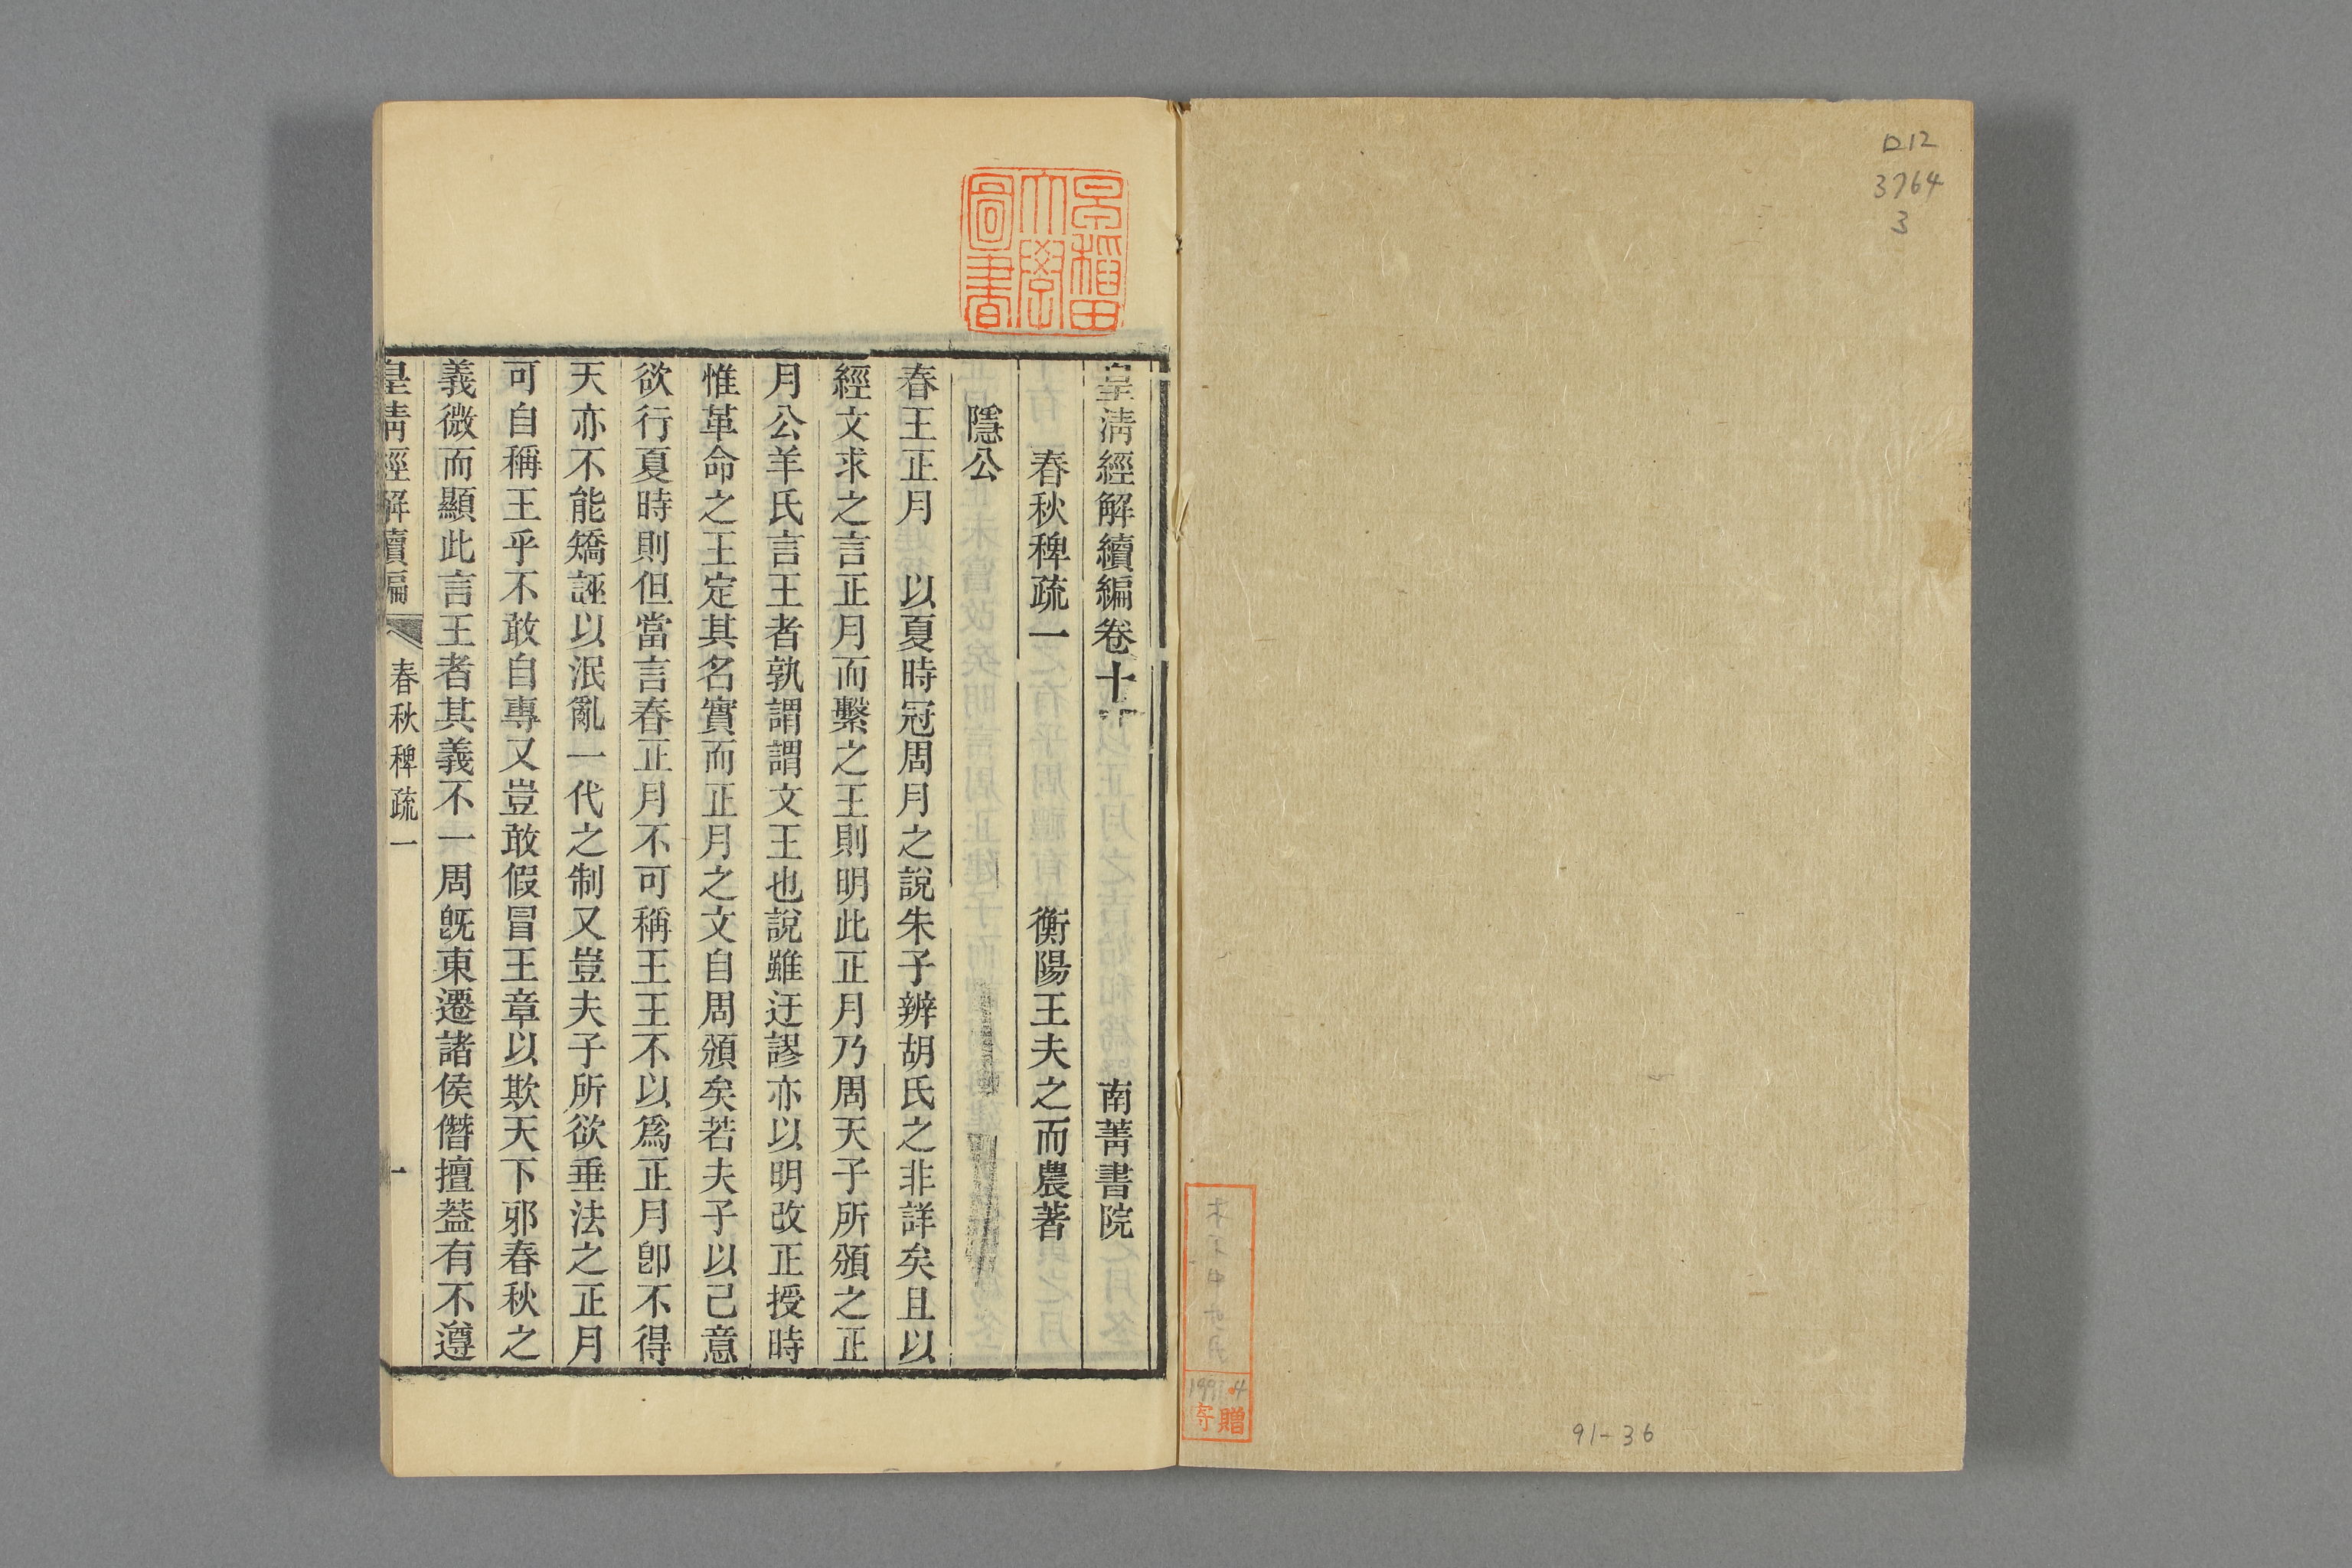 D12
3764
3
91-36
1991.4
寄贈
早稲田大學圖書
皇清經解續編卷十 南菁書院
春秋稗疏一 衡陽王夫之而農著
隱公
春王正月 以夏時冠周月之說朱子辨胡氏之非詳矣且以
經文求之言正月而繫之王則明此正月乃周天子所頒之正
月公羊氏言王者孰謂謂文王也說雖迂謬亦以明改正授時
惟革命之王定其名實而正月之文自周頒矣若夫子以己意
欲行夏時則但當言春正月不可稱王王不以爲正月卽不得
天亦不能矯誣以泯亂一代之制又豈夫子所欲垂法之正月
可自稱王乎不敢自專又豈敢假冒王章以欺天下邪春秋之
義微而顯此言王者其義不一周旣東遷諸侯僭擅葢有不遵
皇清經解續編 春秋稗疏一 一